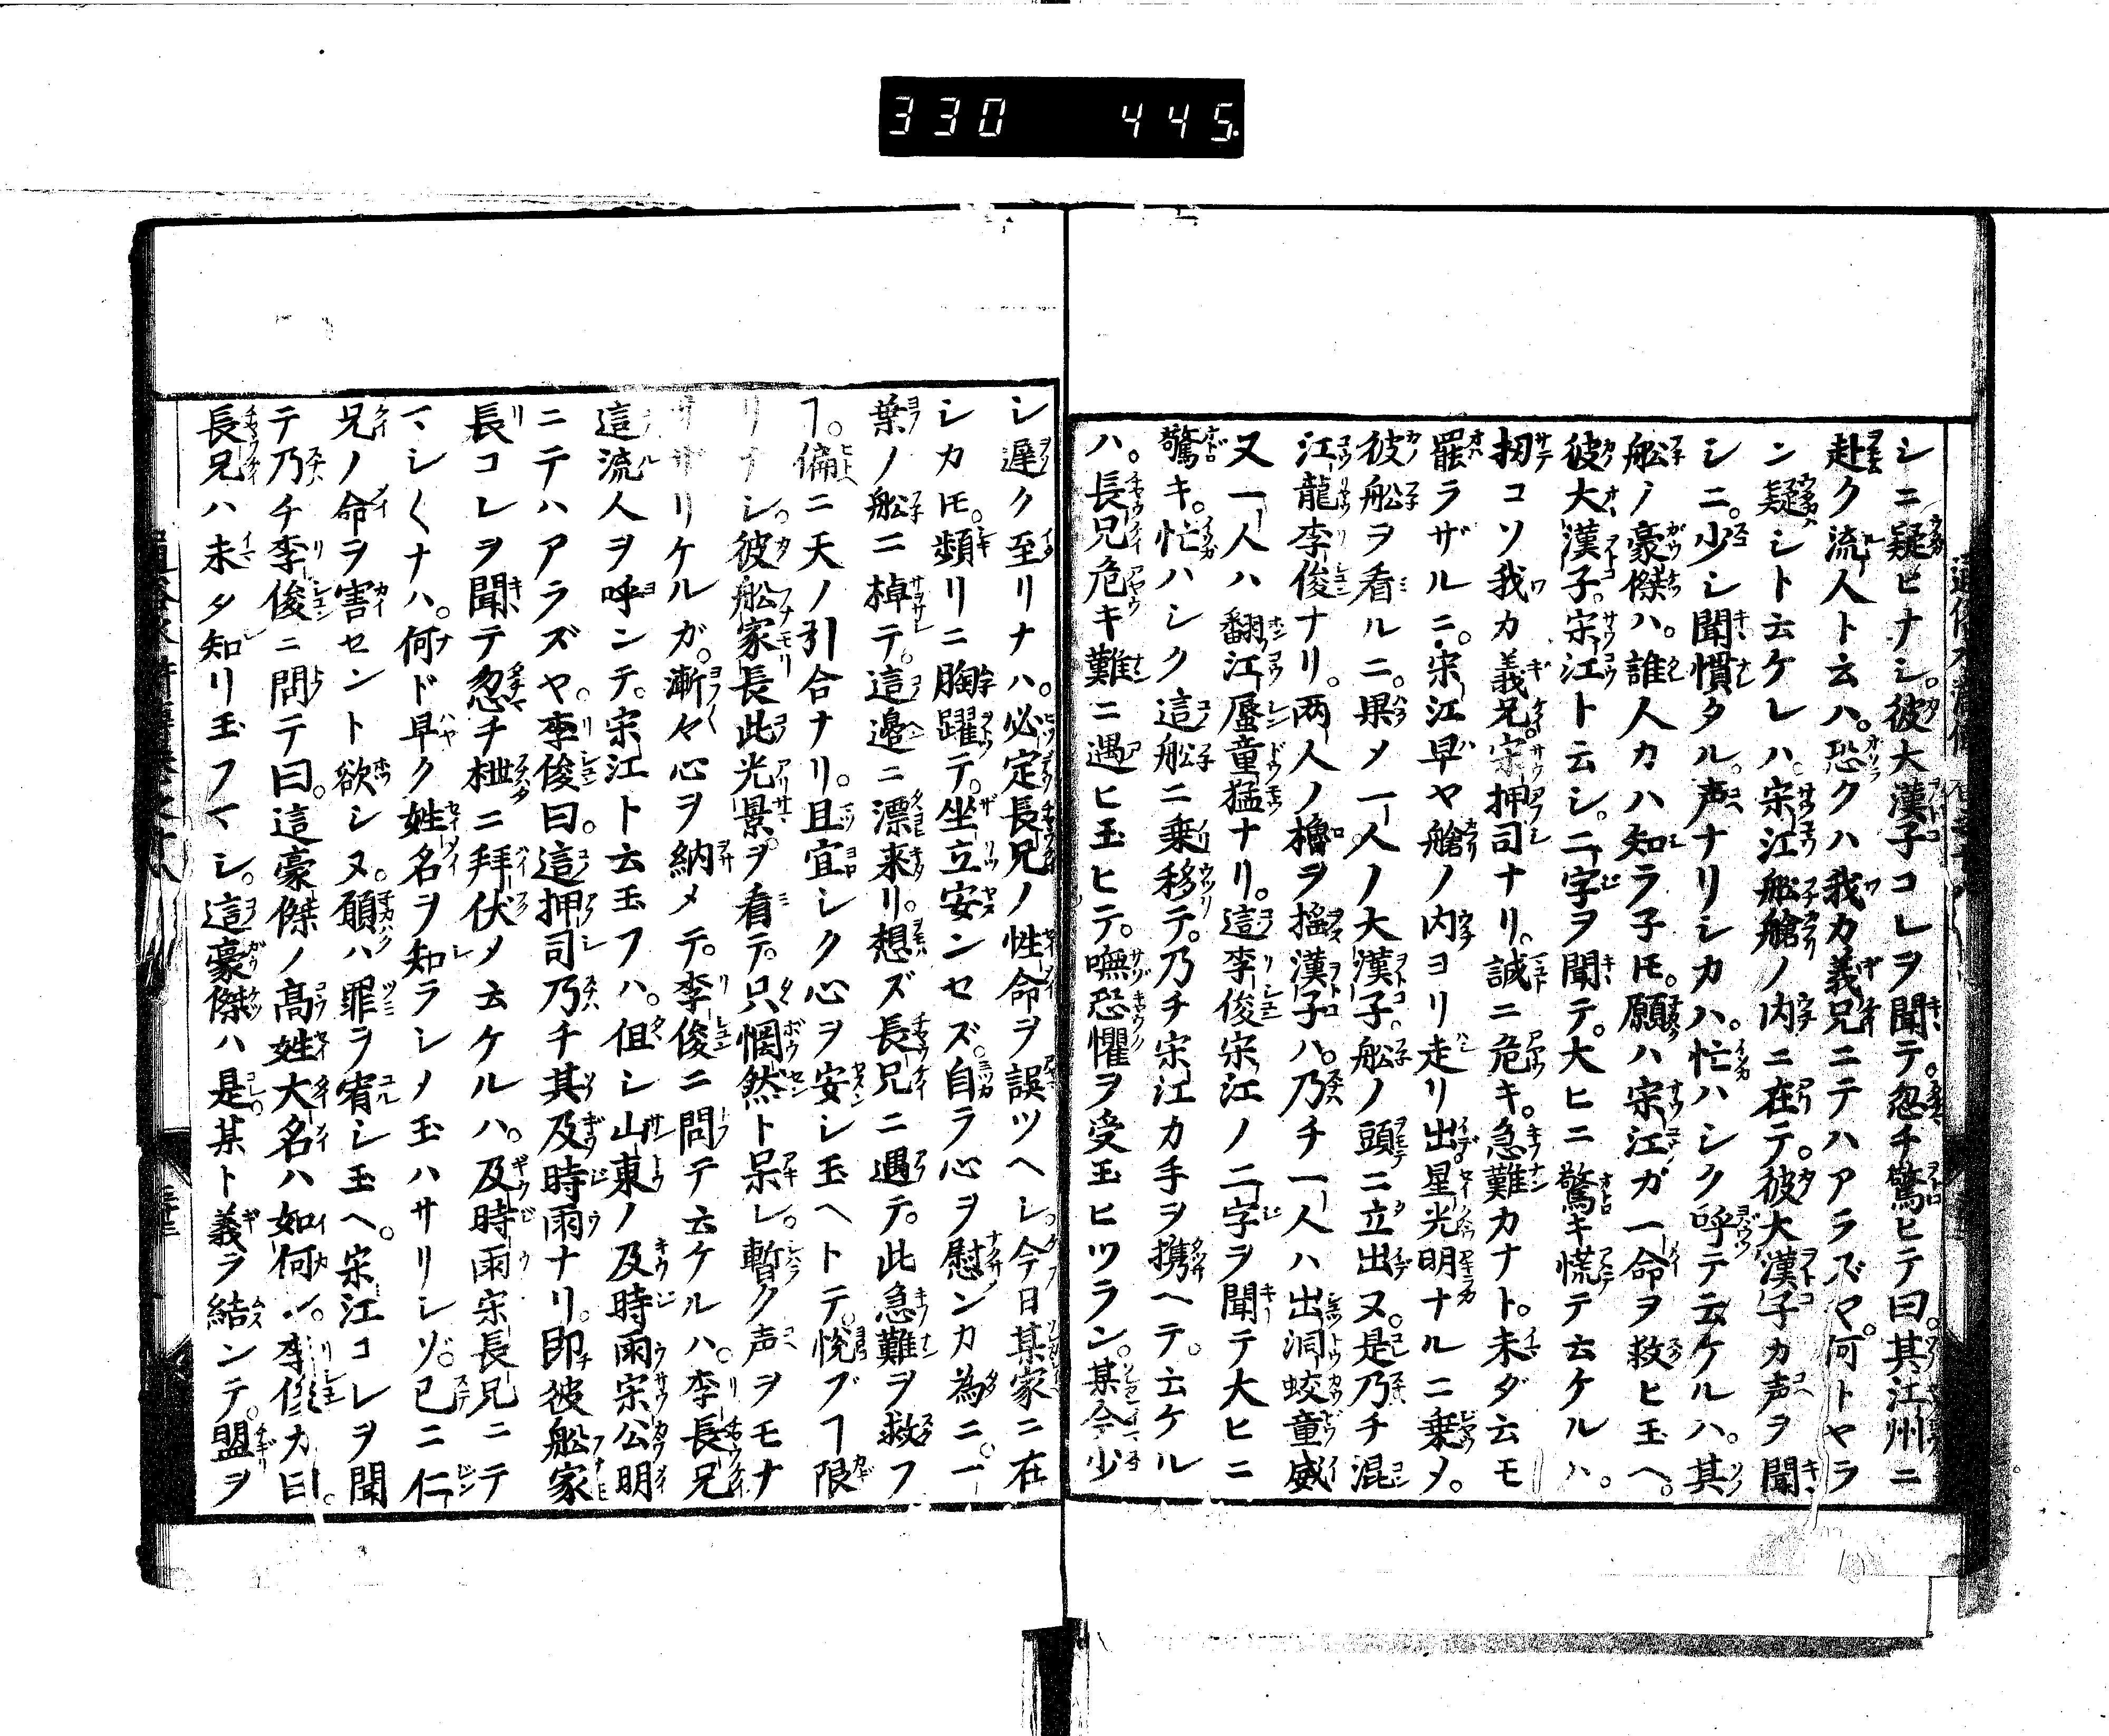 330 445.
シニ疑ヒナシ。彼大漢子コレヲ聞テ。忽チ驚ヒテ曰。其江州ニ
赴ク流人ト云ハ。恐クハ我カ義兄ニテハアラズヤ。何トヤラ
ン疑シト云ケレハ。宋江舩艙ノ内ニ在テ。彼大漢子カ声ヲ聞
シニ。少シ聞慣タル。声ナリシカハ。忙ハシク呼テ云ケルハ。其
舩ノ豪傑ハ。誰人カハ知ラ子𪜈。願ハ宋江ガ一命ヲ救ヒ玉ヘ。
彼大漢子。宋江ト云シ。二字ヲ聞テ。大ヒニ驚キ慌テ云ケルハ。
扨コソ我カ義兄。宋押司ナリ。誠ニ危キ。急難カナト。未ダ云モ
罷ラザルニ。宋江早ヤ艙ノ内ヨリ走リ出星光明ナルニ乗メ。
彼舩ヲ看ルニ。果メ一人ノ大漢子。舩ノ頭ニ立出ヌ。是乃チ混
江龍李俊ナリ。両人ノ櫓ヲ揺漢子ハ。乃チ一人ハ出洞蛟童威
又一人ハ翻江蜃童猛ナリ。這李俊宋江ノ二字ヲ聞テ大ヒニ
驚キ。忙ハシク這舩ニ乗移テ。乃チ宋江カ手ヲ携ヘテ。云ケル
ハ。長兄危キ難ニ遇ヒ玉ヒテ。嘸恐懼ヲ受玉ヒツラン。某今少
シ遅ク至リナハ。必定長兄ノ性命ヲ誤ツヘシ。今日某家ニ在
シカ𪜈。頻リニ胸躍テ。坐立安ンセズ。自ラ心ヲ慰ンカ為ニ。一
葉ノ舩ニ棹テ。這邉ニ漂来リ。想ズ長兄ニ遇テ。此急難ヲ救フ
ヿ。偏ニ天ノ引合ナリ。且宜シク心ヲ安シ玉ヘトテ。悦ブヿ限
リナシ。彼舩家長此光景。ヲ看テ。只惘然ト呆レ。暫ク声ヲモナ
サザリケルガ。漸々心ヲ納メテ。李俊ニ問テ云ケルハ。李長兄
這流人ヲ呼ンテ。宋江ト云玉フハ。伹シ山東ノ及時雨宋公明
ニテハアラズヤ。李俊曰。這押司乃チ其及時雨ナリ。即彼舩家
長コレヲ聞テ忽チ枻ニ拜伏メ云ケルハ。及時雨宋長兄ニテ
マシ〱ナハ。何ド早ク姓名ヲ知ラシメ玉ハサリシゾ。已ニ仁
兄ノ命ヲ害セント欲シヌ。願ハ罪ヲ宥シ玉ヘ。宋江コレヲ聞
テ乃チ李俊ニ問テ曰。這豪傑ノ髙姓大名ハ如何ン。李俊カ曰。
長兄ハ未タ知リ玉フマシ。這豪傑ハ是某ト義ヲ結ンテ。盟ヲ